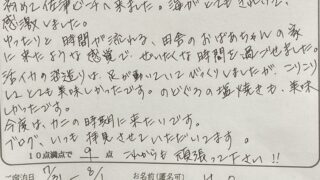 初めて佐津ビーチへ来ました。海がとてもきれいで、
感激しました。
ゆったりと時間が流れる、田舎のおばあちゃんの家
に来たような感覚で、ぜいたくな時間を過ごせました。
活イカの姿造りは、足が動いていてびっくりしましたが、こりこり
しとても美味しかったです。のどぐろの塩焼きも、美味
しかったです。
今度は、カニの時期に来たいです。
ブログ、いつも拝見させていただいてます。
10点満点で 9 点 これからも頑張って下さい!!
ご宿泊日 7/31 ~ 8/1 お名前(匿名可)